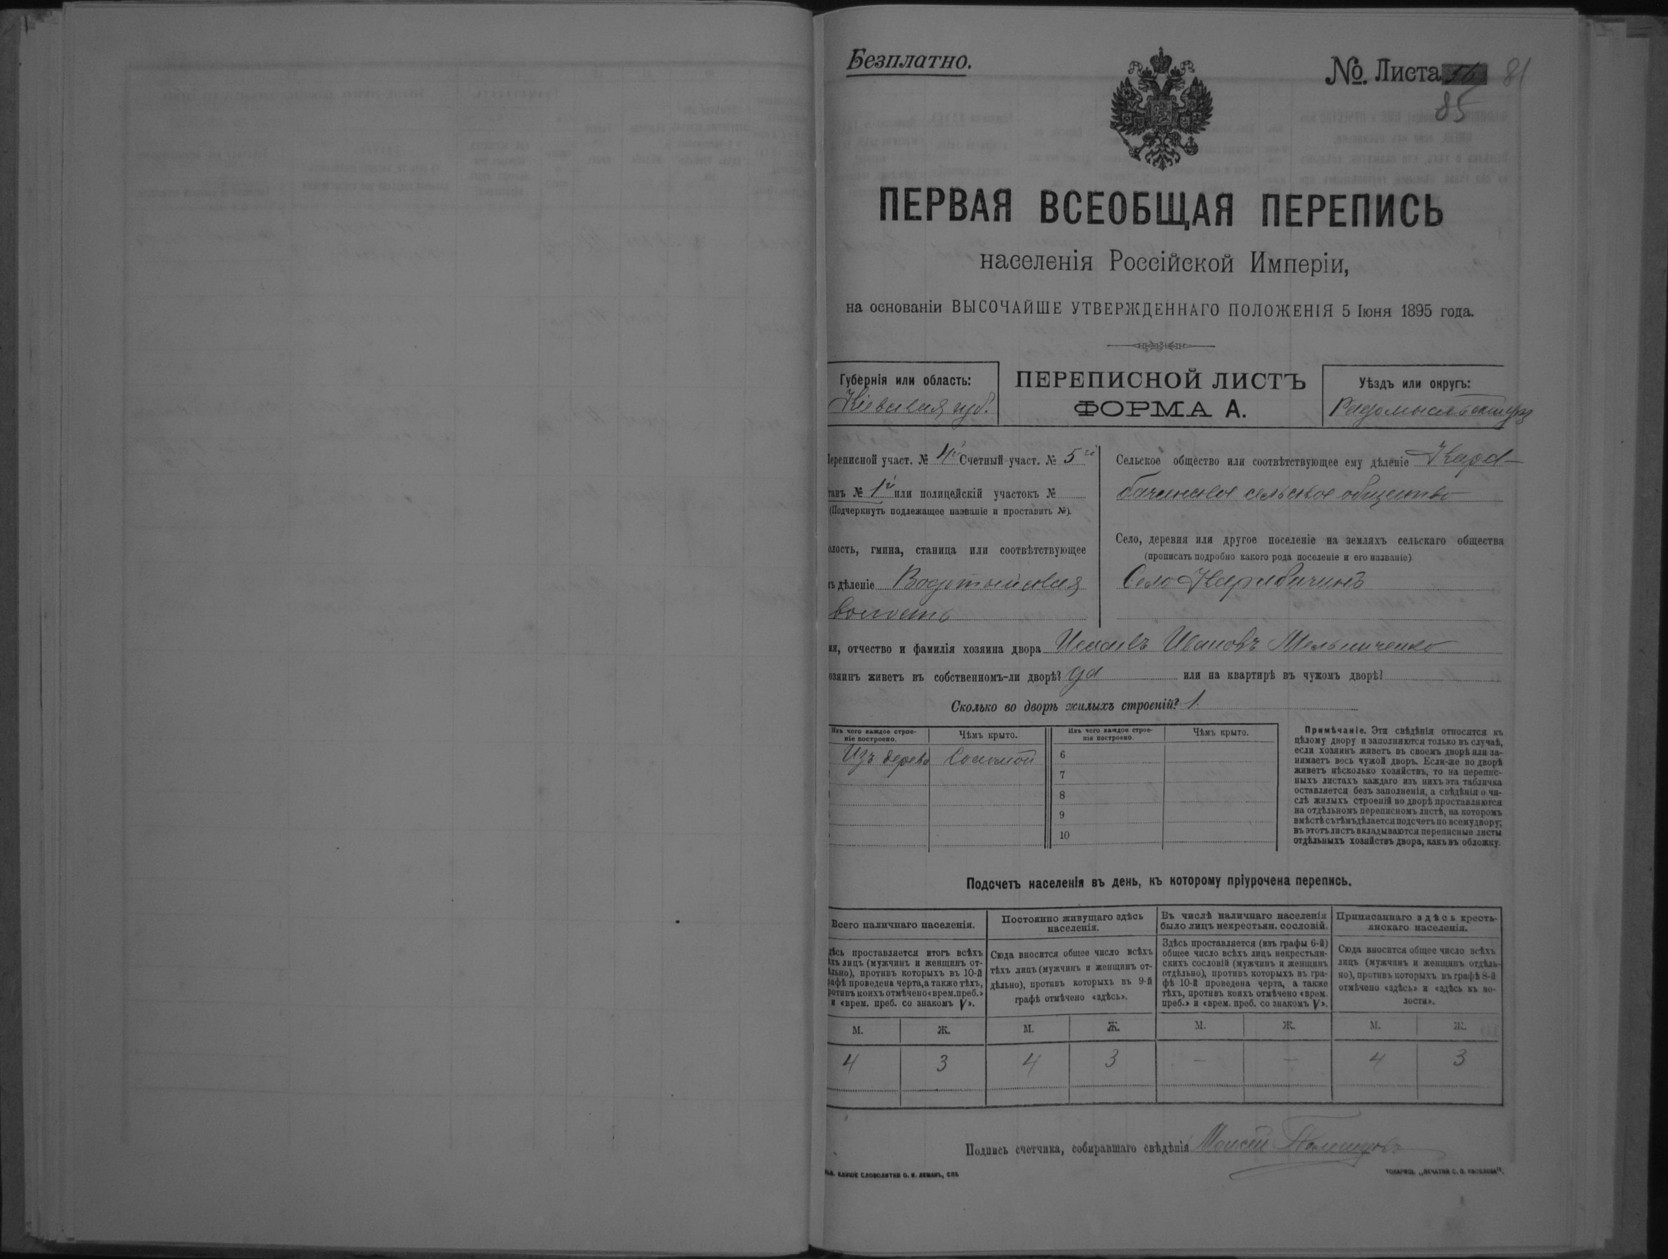 Безплатно.
№. Листа 81
85
ПЕРВАЯ ВСЕОБЩАЯ ПЕРЕПИСЬ
населенія Россійской Имперіи,
на основаніи ВЫСОЧАЙШЕ УТВЕРЖДЕННАГО ПОЛОЖЕНІЯ 5 Іюня 1895 года.
Губернія или область:
Кіевская губ.
ПЕРЕПИСНОЙ ЛИСТЪ
ФОРМА А.
Уѣздъ или округъ:
Переписной участ. № 4й Счетный участ. № 5й
танъ № 1й или полицейскій участокъ №
(Подчеркнуть подлежащее названіе и проставить №).
олость, гмина, станица или соотвѣтствующее
ъ дѣленіе
волость
Сельское общество или соотвѣтствующее ему дѣленіе Кара-
бачинское сельское общество
Село, деревня или другое поселеніе на земляхъ сельскаго общества
(прописать подробно какого рода поселеніе и его названіе)
Село Карабачинъ
мя, отчество и фамилія хозяина двора Ивановъ Мельниченко
озяинъ живетъ въ собственномъ-ли дворѣ? да или на квартирѣ въ чужомъ дворѣ?
Сколько во дворѣ жилыхъ строеній? 1
Изъ чего каждое строе-
ніе построено.
Чѣмъ крыто.
Изъ чего каждое строе-
ніе построено.
Чѣмъ крыто.
Изъ дерева Соломой
6
7
8
9
10
Примѣчаніе. Эти свѣдѣнія относятся къ
цѣлому двору и заполняются только въ случаѣ,
если хозяинъ живетъ въ своемъ дворѣ или за-
нимаетъ весь чужой дворъ. Если-же во дворѣ
живетъ нѣсколько хозяйствъ, то на перепис-
ныхъ листахъ каждаго изъ нихъ эта табличка
оставляется безъ заполненія, а свѣдѣнія о чи-
слѣ жилыхъ строеній во дворѣ проставляются
на отдѣльномъ переписномъ листѣ, на которомъ
вмѣстѣ съ тѣмъ дѣлается подсчетъ по всему двору;
въ этотъ листъ вкладываются переписные листы
отдѣльныхъ хозяйствъ двора, какъ въ обложку.
Подсчетъ населенія въ день, къ которому пріурочена перепись.
Всего наличнаго населенія.
дѣсь проставляется итогъ всѣхъ
ѣхъ лицъ (мужчинъ и женщинъ от-
ѣльно), противъ которыхъ въ 10-й
рафѣ проведена черта, а также тѣхъ,
ротивъ коихъ отмѣчено «врем. преб.»
и «врем. преб. со знакомъ V».
Постоянно живущаго здѣсь
населенія.
Сюда вносится общее число всѣхъ
тѣхъ лицъ (мужчинъ и женщинъ от-
дѣльно), противъ которыхъ въ 9-й
графѣ отмѣчено «здѣсь».
Въ числѣ наличнаго населенія
было лицъ некрестьян. сословій.
Здѣсь проставляется (изъ графы 6-й)
общее число всѣхъ лицъ некрестьян-
скихъ сословій (мужчинъ и женщинъ
отдѣльно), противъ которыхъ въ гра-
фѣ 10-й проведена черта, а также
тѣхъ, противъ коихъ отмѣчено «врем.
преб.» и «врем. преб. со знакомъ V».
Приписаннаго здѣсь кресть-
янскаго населенія.
Сюда вносится общее число всѣхъ
лицъ (мужчинъ и женщинъ отдѣль-
но), противъ которыхъ въ графѣ 8-й
отмѣчено «здѣсь» и «здѣсь къ во-
лости».
М. Ж. М. Ж. М. Ж. М. Ж.
4 3 4 3 – – 4 3
Подпись счетчика, собиравшаго свѣдѣнія
СЛОВОЛИТНИ О. И. ЛЕМАНЪ, СПБ.